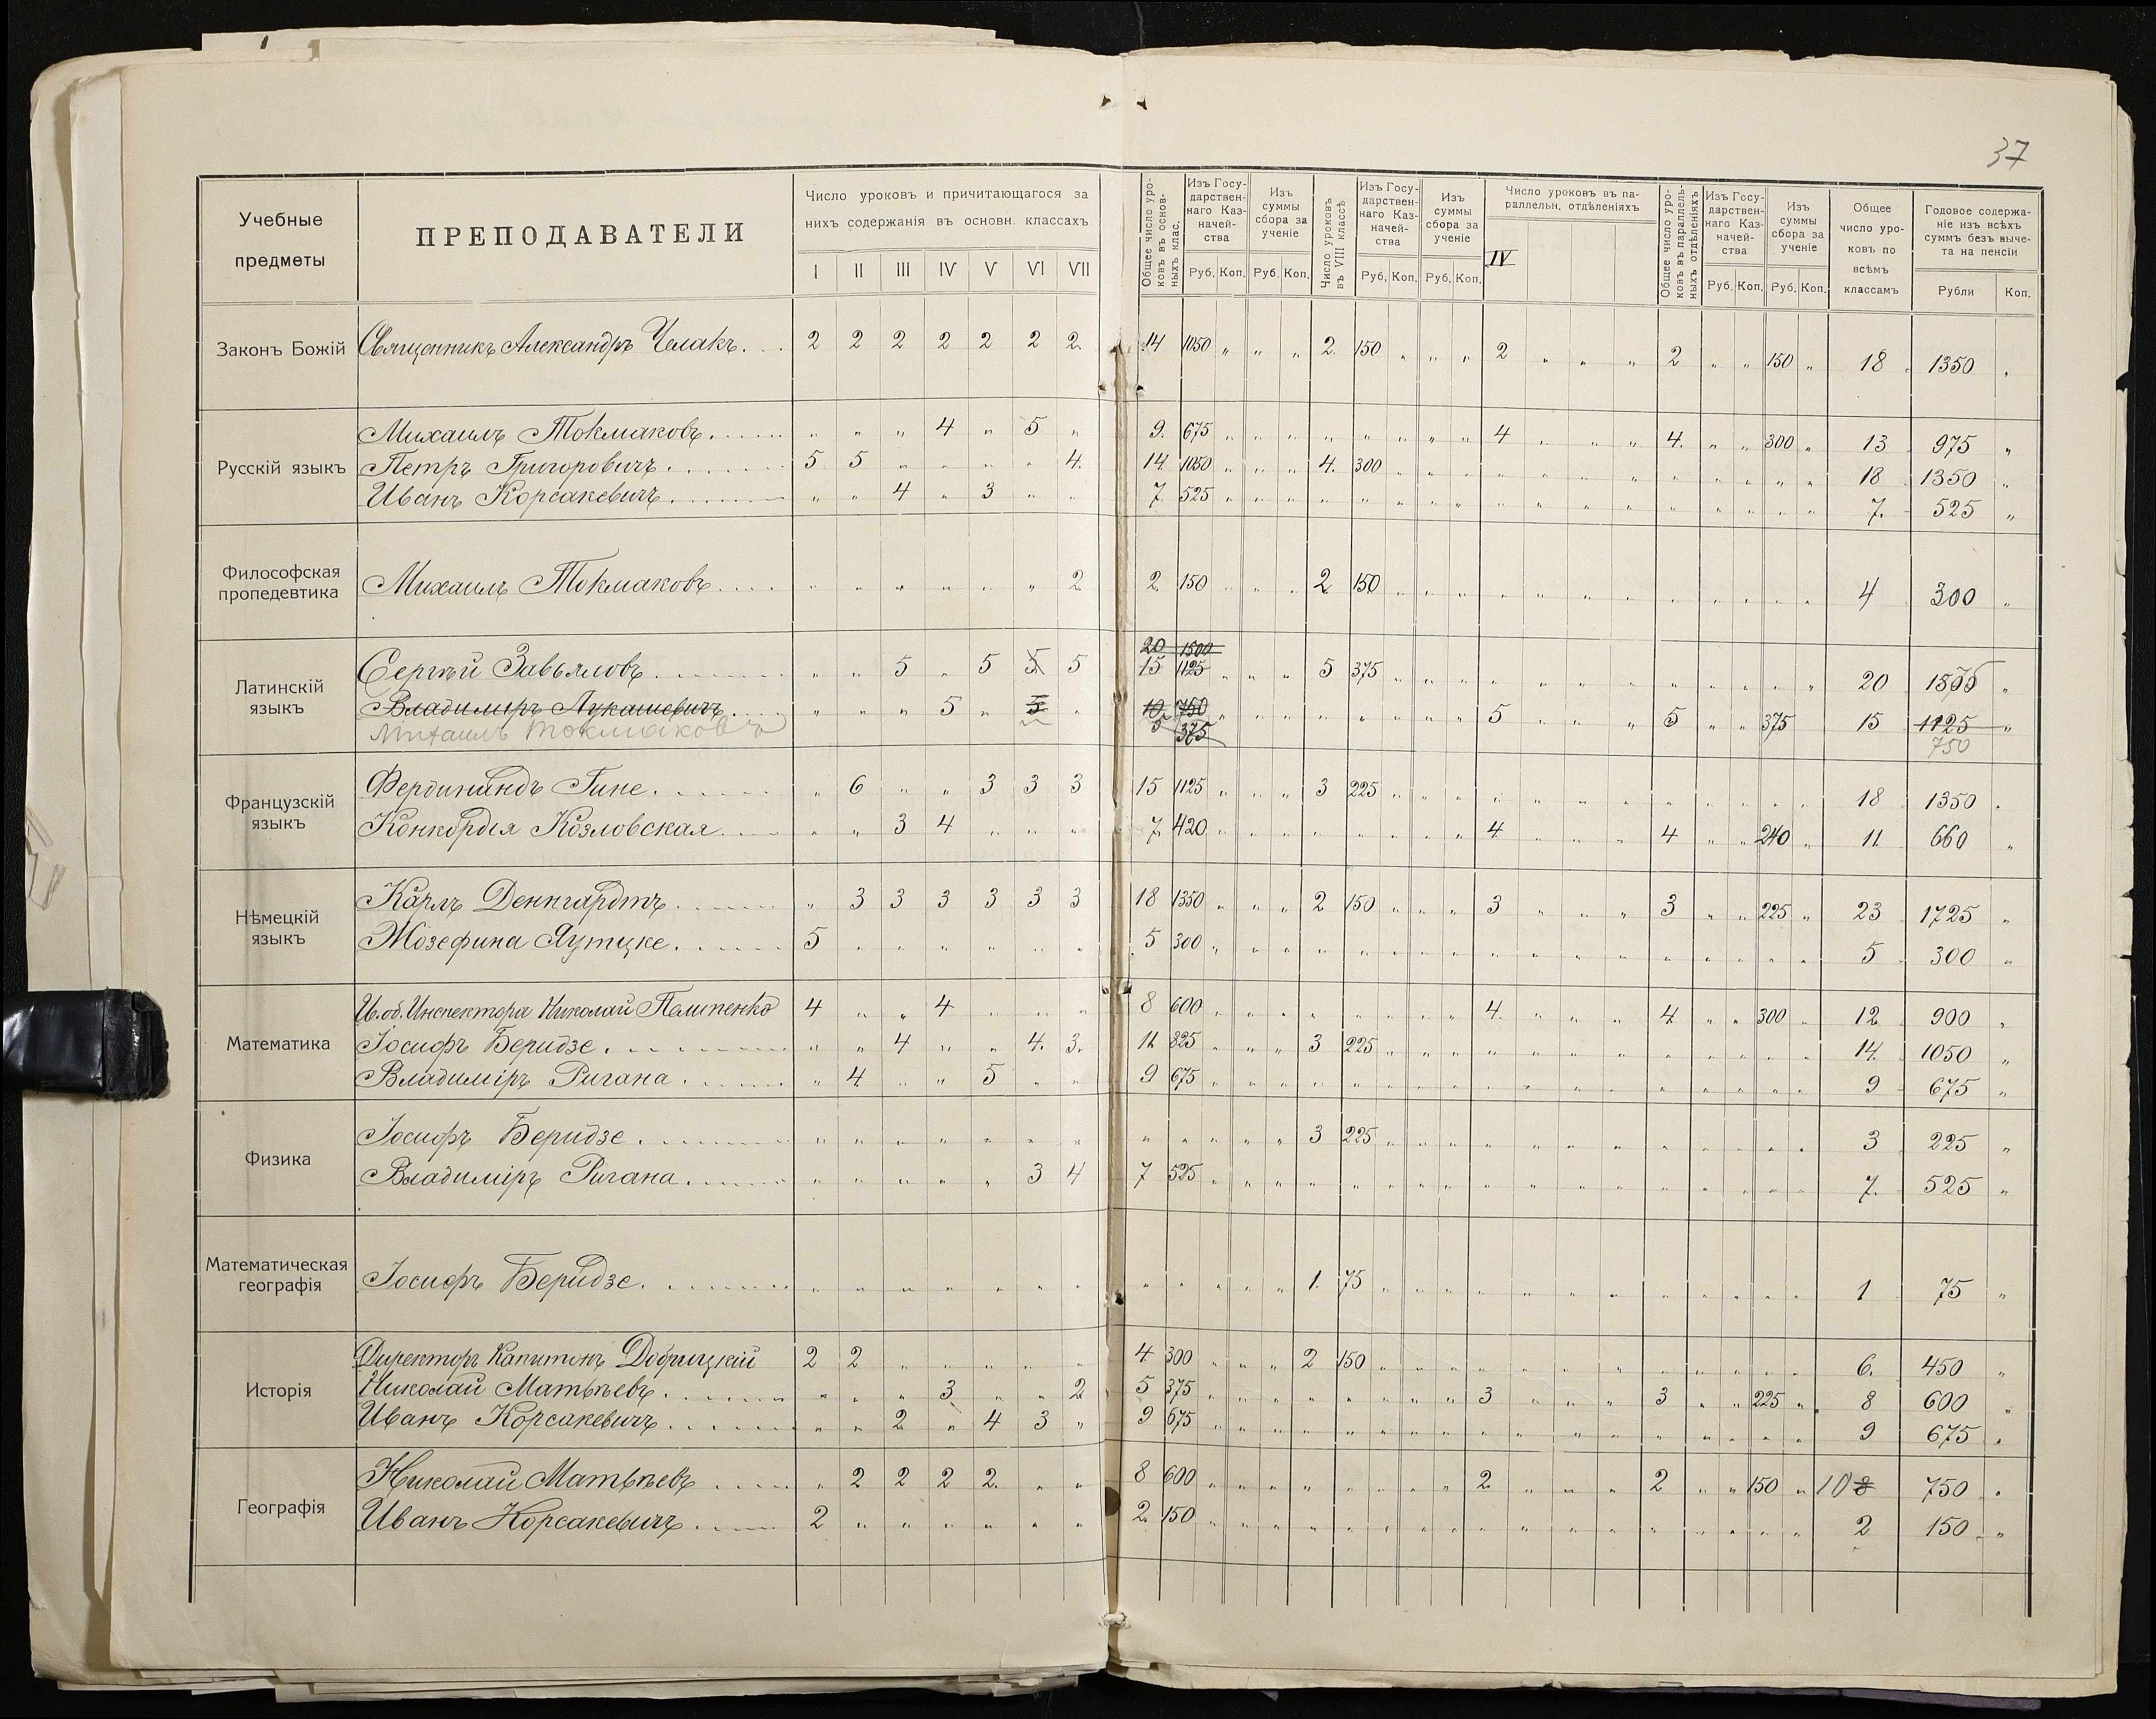 37
Учебные предметы
ПРЕПОДАВАТЕЛИ
Число уроковъ и причитающагося за
нихъ содержанія въ основн. классахъ
I II III IV V VI VII
Общее число уроковъ въ основныхъ клас.
Изъ Государственнаго Казначейства
Руб. Коп.
Изъ суммы сбора за ученіе
Руб. Коп.
Число уроковъ въ VIII классѣ
Изъ Государственнаго Казначейства
Руб. Коп.
Изъ суммы сбора за ученіе
Руб. Коп.
Число уроковъ въ параллельн. отдѣленіяхъ
IV
Общее число уроковъ въ параллельныхъ отдѣленіяхъ
Изъ Государственнаго Казначейства
Руб. Коп.
Изъ суммы сбора за ученіе
Руб. Коп.
Общее число уроковъ по всѣмъ классамъ
Годовое содержаніе изъ всѣхъ суммъ безъ вычета на пенсіи
Рубли Коп.
Законъ Божій Священникъ Александръ Челакъ. 2 2 2 2 2 2 2 14 1050 2 150 2 2 150 18 1350
Русскій языкъ
Михаилъ Токмаковъ. 4 5 9 675 4 4 300 13 975
Петръ Григоровичъ. 5 5 4 14 1050 4 300 18 1350
Иванъ Корсакевичъ. 4 3 7 525 7 525
Философская пропедевтика
Михаилъ Токмаковъ. 2 2 150 2 150 4 300
Латинскій языкъ
20 1500
Сергѣй Завьяловъ. 5 5 5 5 15 1125 5 375 20
Владимиръ Лукашевичъ. 5 5 10 750 5 5 375 15 1125
Михаилъ Токмаковъ 5 375 750
Французскій языкъ
Фердинандъ Гине. 6 3 3 3 15 1125 3 225 18 1350
Конкордія Козловская 3 4 7 420 4 4 240 11 660
Нѣмецкій языкъ
Карлъ Деннгардтъ. 3 3 3 3 3 3 18 1350 2 150 3 3 225 23 1725
Жозефина Яутцке. 5 5 300 5 300
Математика
И.об. Инспектора Николай Пелипенко 4 4 8 600 4 4 300 12 900
Іосифъ Беридзе. 4 4 3 11 825 3 225 14 1050
Владиміръ Ригана. 4 5 9 675 9 675
Физика
Іосифъ Беридзе. 3 225 3 225
Владиміръ Ригана. 3 4 7 525 7 525
Математическая географія
Іосифъ Беридзе. 1 75 1 75
Исторія
Директоръ Капитонъ Добрицкій 2 2 4 300 2 150 6 450
Николай Матвѣевъ. 3 2 5 375 3 3 225 8 600
Иванъ Корсакевичъ 2 4 3 9 675 9 675
Географія
Николай Матвѣевъ 2 2 2 2 8 600 2 2 150 10 8 750
Иванъ Корсакевичъ. 2 2 150 2 150